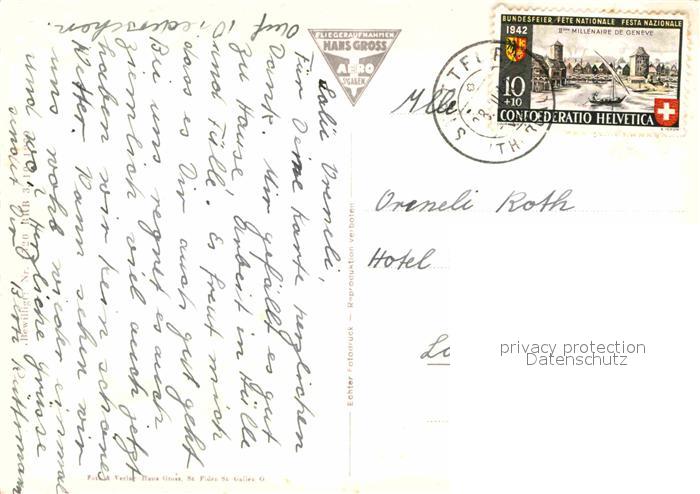 Auf Wiedersehen.
Salü Vreneli,
Für Deine Karte herzlichen
Dank. Mir gefällt es gut
zu Hause, Arbeit in Hülle
und Fülle. Es freut mich
das es Dir auch gut geht
Bei uns regnet es auch
ziemlich viel auch jetzt
haben wir kein schönes
Wann sehen wir
uns wohl wieder einmal
und wo? Herzliche Grüsse
FLIEGERAUFNAHMEN
HANS GROSS
AERO
ST.GALLEN
BUNDESFEIER FETE NATIONALE FESTA NAZIONALE
1942
IIme MILLÉNAIRE DE GENÈVE
10
+10
CONFOEDERATIO HELVETICA
Mlle
Vreneli Roth
Hotel
privacy protection
Datenschutz
Echter Fotodruck — Reproduktion verboten
Foto & Verlag Hans Gross, St. Fiden St. Gallen O.